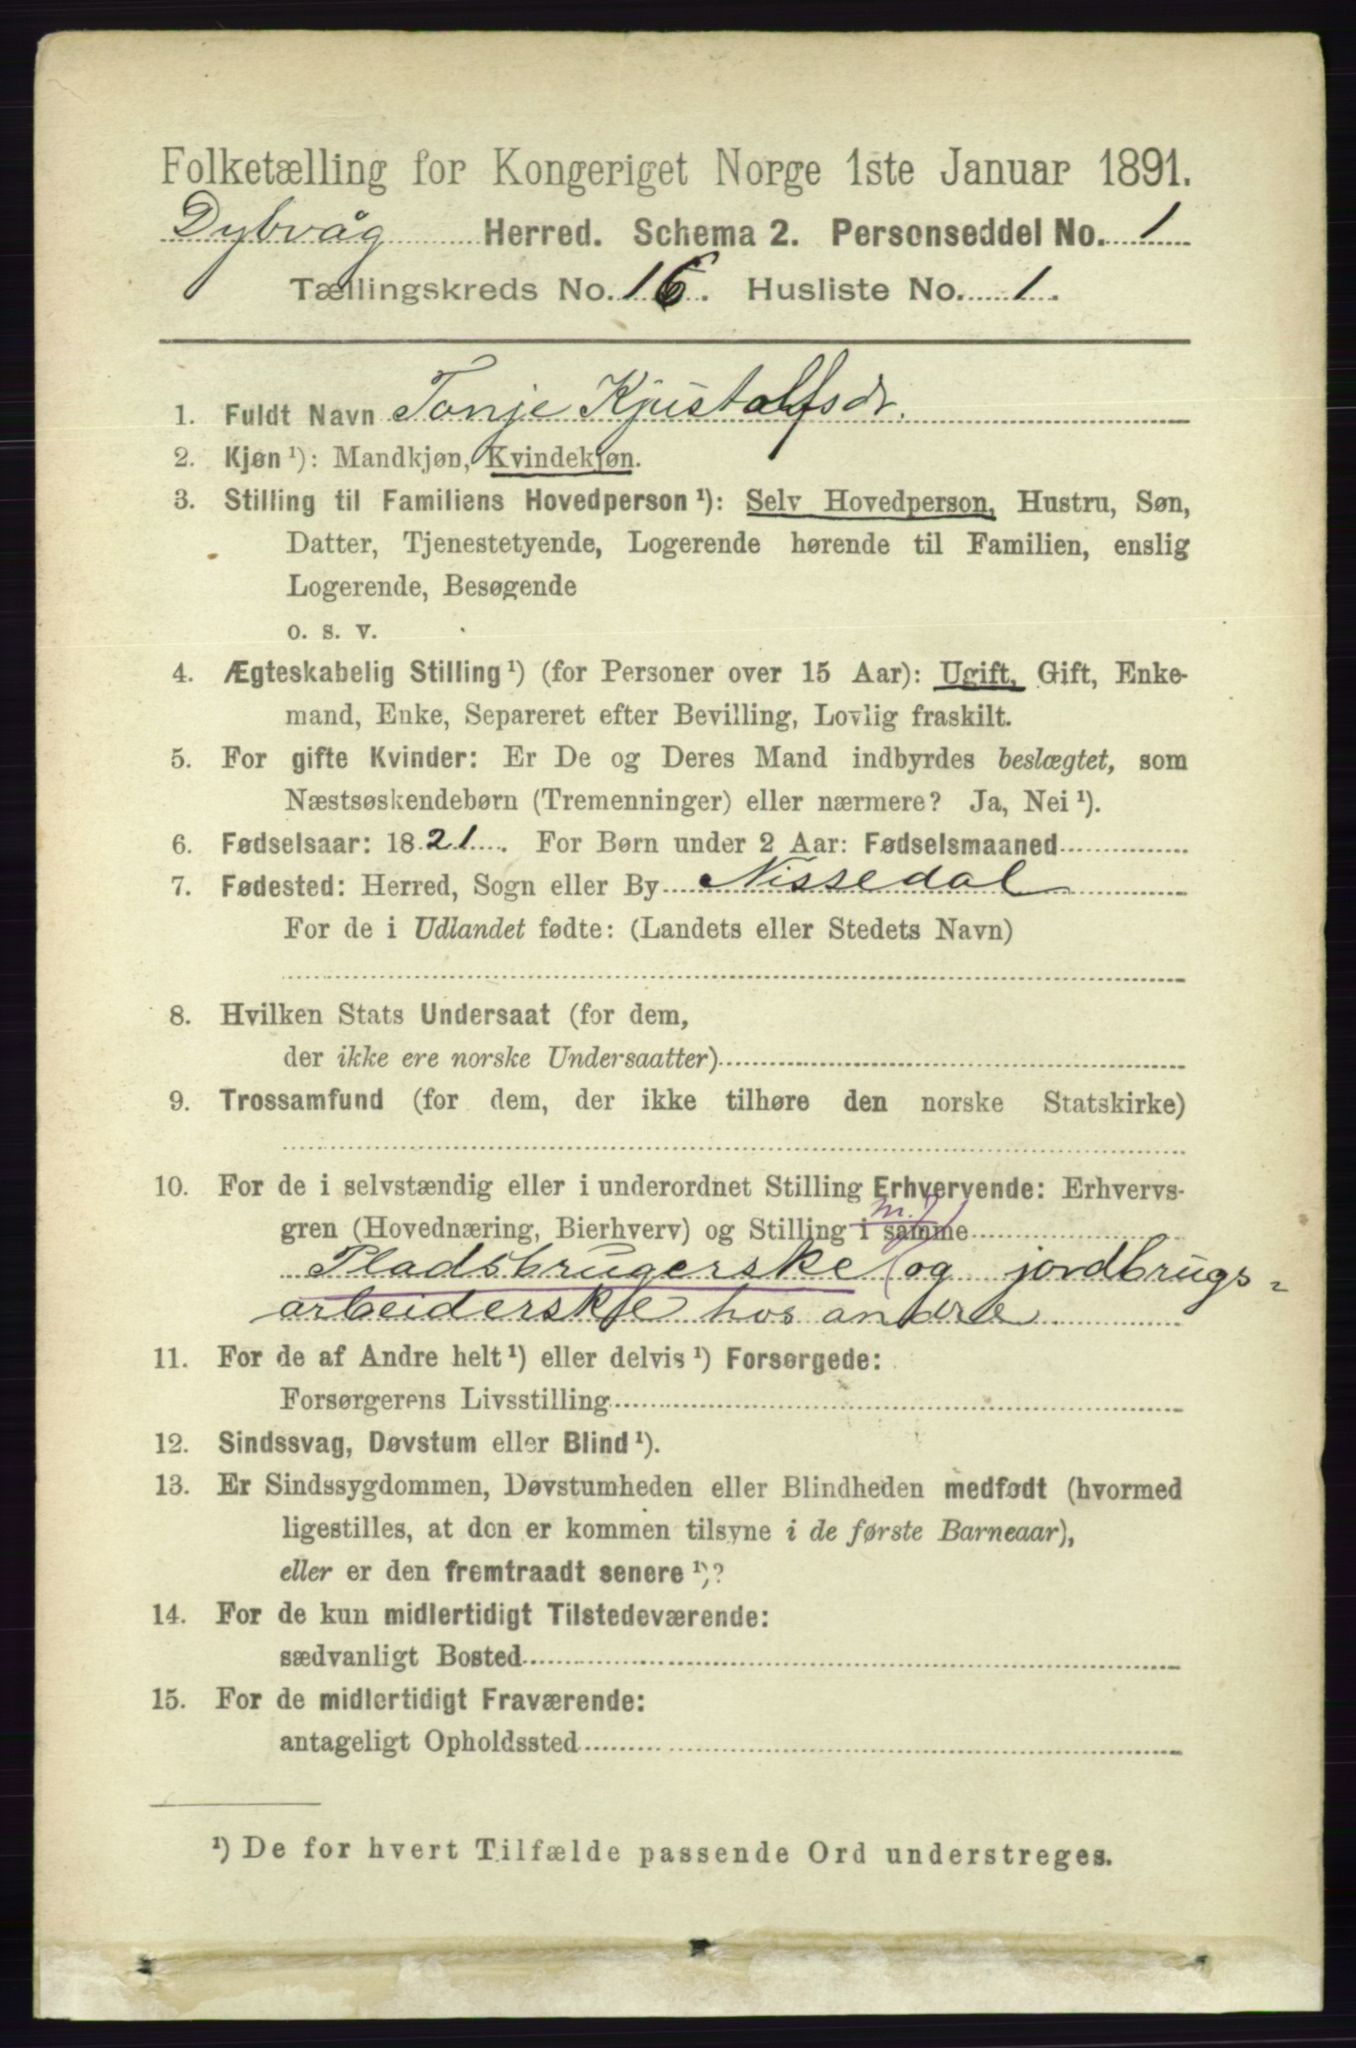 Folketælling for Kongeriget Norge 1ste Januar 1891.
Dybvåg Herred. Schema 2. Personseddel No. 1
Tællingskreds No. 16. Husliste No. 1.
1. Fuldt Navn Tonje Kjustolfsdr.
2. Kjøn ¹): Mandkjøn, Kvindekjøn.
3. Stilling til Familiens Hovedperson ¹): Selv Hovedperson, Hustru, Søn,
Datter, Tjenestetyende, Logerende hørende til Familien, enslig
Logerende, Besøgende
o. s. v.
4. Ægteskabelig Stilling ¹) (for Personer over 15 Aar): Ugift, Gift, Enke-
mand, Enke, Separeret efter Bevilling, Lovlig fraskilt.
5. For gifte Kvinder: Er De og Deres Mand indbyrdes beslægtet, som
Næstsøskendebørn (Tremenninger) eller nærmere? Ja, Nei ¹).
6. Fødselsaar: 1821. For Børn under 2 Aar: Fødselsmaaned
7. Fødested: Herred, Sogn eller By Nissedal
For de i Udlandet fødte: (Landets eller Stedets Navn)
8. Hvilken Stats Undersaat (for dem,
der ikke ere norske Undersaatter)
9. Trossamfund (for dem, der ikke tilhøre den norske Statskirke)
10. For de i selvstændig eller i underordnet Stilling Erhvervende: Erhvervs-
gren (Hovednæring, Bierhverv) og Stilling i samme
Pladsbrugerske og jordbrugs-
arbeiderske hos andre
11. For de af Andre helt ¹) eller delvis ¹) Forsørgede:
Forsørgerens Livsstilling
12. Sindssvag, Døvstum eller Blind ¹).
13. Er Sindssygdommen, Døvstumheden eller Blindheden medfødt (hvormed
ligestilles, at den er kommen tilsyne i de første Barneaar),
eller er den fremtraadt senere ¹)?
14. For de kun midlertidigt Tilstedeværende:
sædvanligt Bosted
15. For de midlertidigt Fraværende:
antageligt Opholdssted
¹) De for hvert Tilfælde passende Ord understreges.